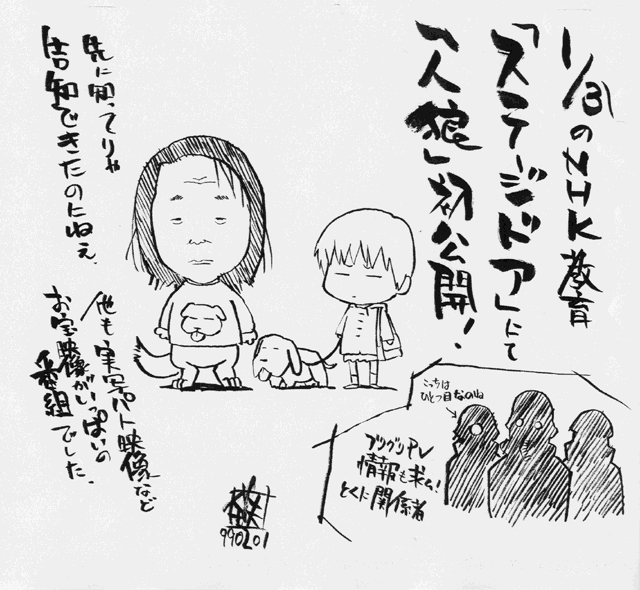 1/31のNHK教育
「ステージドア」にて
「人狼」初公開！
先に知ってりゃ
告知できたのにねえ、
他も実写パト映像など
お宝映像がいっぱいの
番組でした、
こっちは
ひとつ目なのね
ブツグリPV
情報も求ム!
とくに関係者
990201